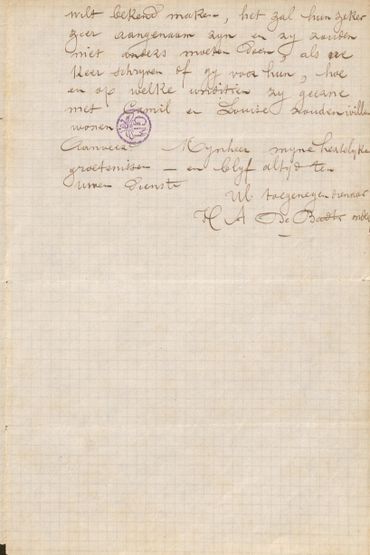 wilt bekend maken, het zal hun zeker
zeer aangenaam zyn en zy zouden
niet anders moeten doen, als we
keer schryven of gy voor hun, hoe
en op welke conditien zy geerne
met Camil en Louise zouden willen
wonen
Aanveerd Mynheer myne hertelyke
groetenissen — en blyf altyd ten
uwen dienste
Ul toegenegen dienaar
H A De